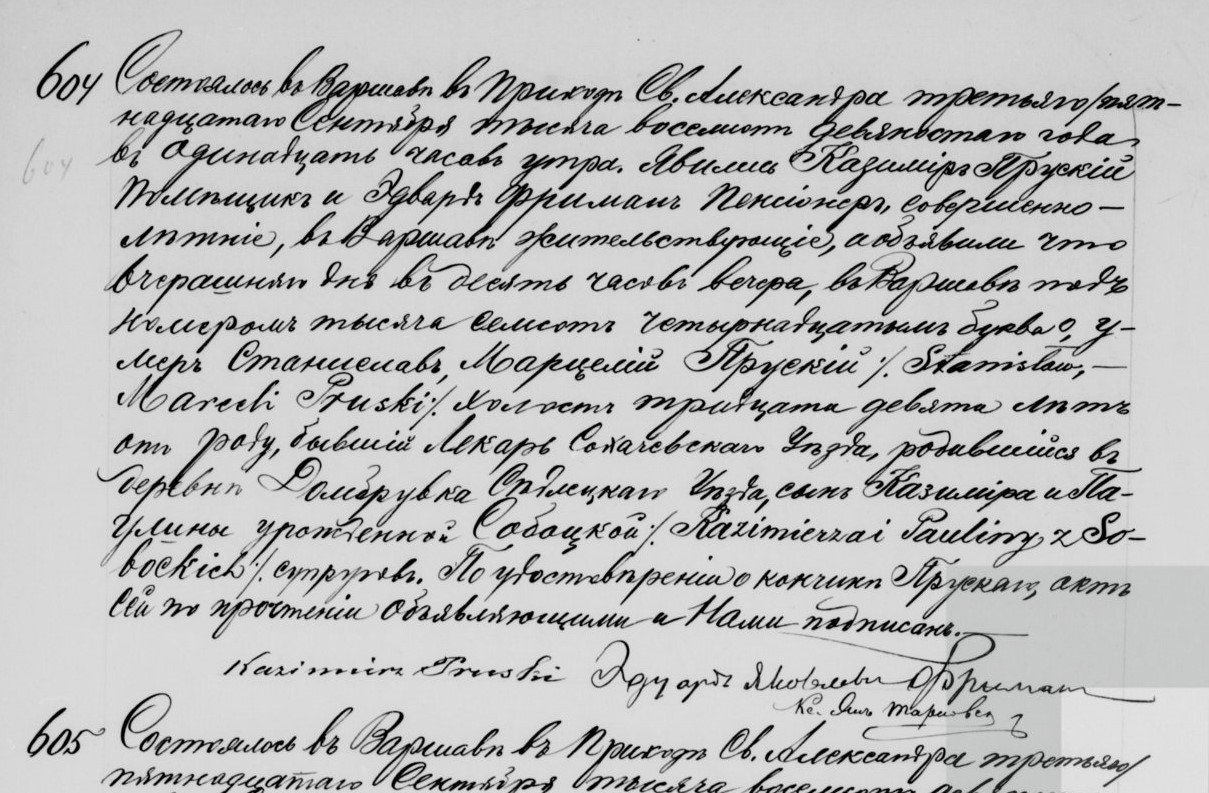 604 Состоялось въ Варшавѣ въ Приходѣ Св. Александра третьяго/пят-
надцатаго Сентября тысяча восемсотъ девяностаго года
604
въ одинадцать часовъ утра. Явились Казиміръ Прускій
Помѣщикъ и Эдвардъ Фриманъ Пенсіонеръ, совершенно-
лѣтніе, въ Варшавѣ жительствующіе, и объявили что
вчерашняго дня въ десять часовъ вечера, въ Варшавѣ подъ
номеромъ тысяча семсотъ четырнадцатымъ буква о, у-
меръ Станиславъ, Марцелій Прускій /. Stanisław,-
Marceli Pruski /. холостъ тридцати девяти лѣтъ
отъ роду, бывшій Лекарь Сохачевскаго Уѣзда, родившійся въ
деревнѣ Домбрувка Сѣдлецкаго Уѣзда, сынъ Казиміра и Па-
улины урожденной Собоцкой /. Kazimierza i Pauliny z So-
bockich /. супруговъ. По удостовѣреніи о кончинѣ Прускаго, актъ
сей по прочтеніи объявляющими и Нами подписанъ.-
Kazimierz Pruski Эдуардъ Яковлевъ Фриманъ
Кс. Янъ
605 Состоялось въ Варшавѣ въ Приходѣ Св. Александра третьяго/
пятнадцатаго Сентября тысяча восемсотъ